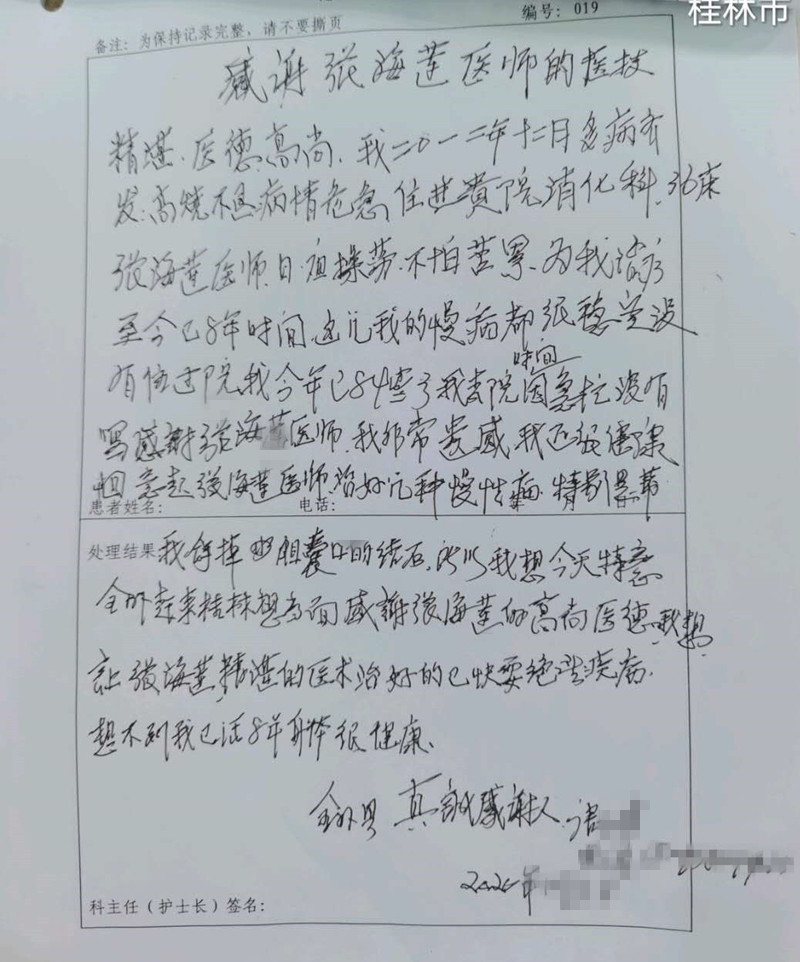 桂林市
编号：019
备注：为保持记录完整，请不要撕页
感谢张海莲医师的医技
精堪.医德高尚.我二〇一二年十二月多病齐
发.高烧不退病情危急住进贵院消化科.36床
张海莲医师.日夜操劳.不怕苦累.为我治疗
至今已8年时间.这几我的慢病都很稳定没
时间
有住过院.我今年已84岁了我出院因急忙没有
写感謝张海莲医师.我非常遗感.我还很健康
回意起张海莲医师治好几种慢性病.特别是帮
患者姓名：
电话：
处理结果
我 掉 胆囊口的结石.所以我想今天特意
全州赶来桂林想当面感谢张海莲的高尚医德.我想
让张海莲精湛的医术治好的已快要绝 疾病.
想不到我已活8年身体很健康.
全州县 真诚感谢人.
2020年
科主任（护士长）签名：